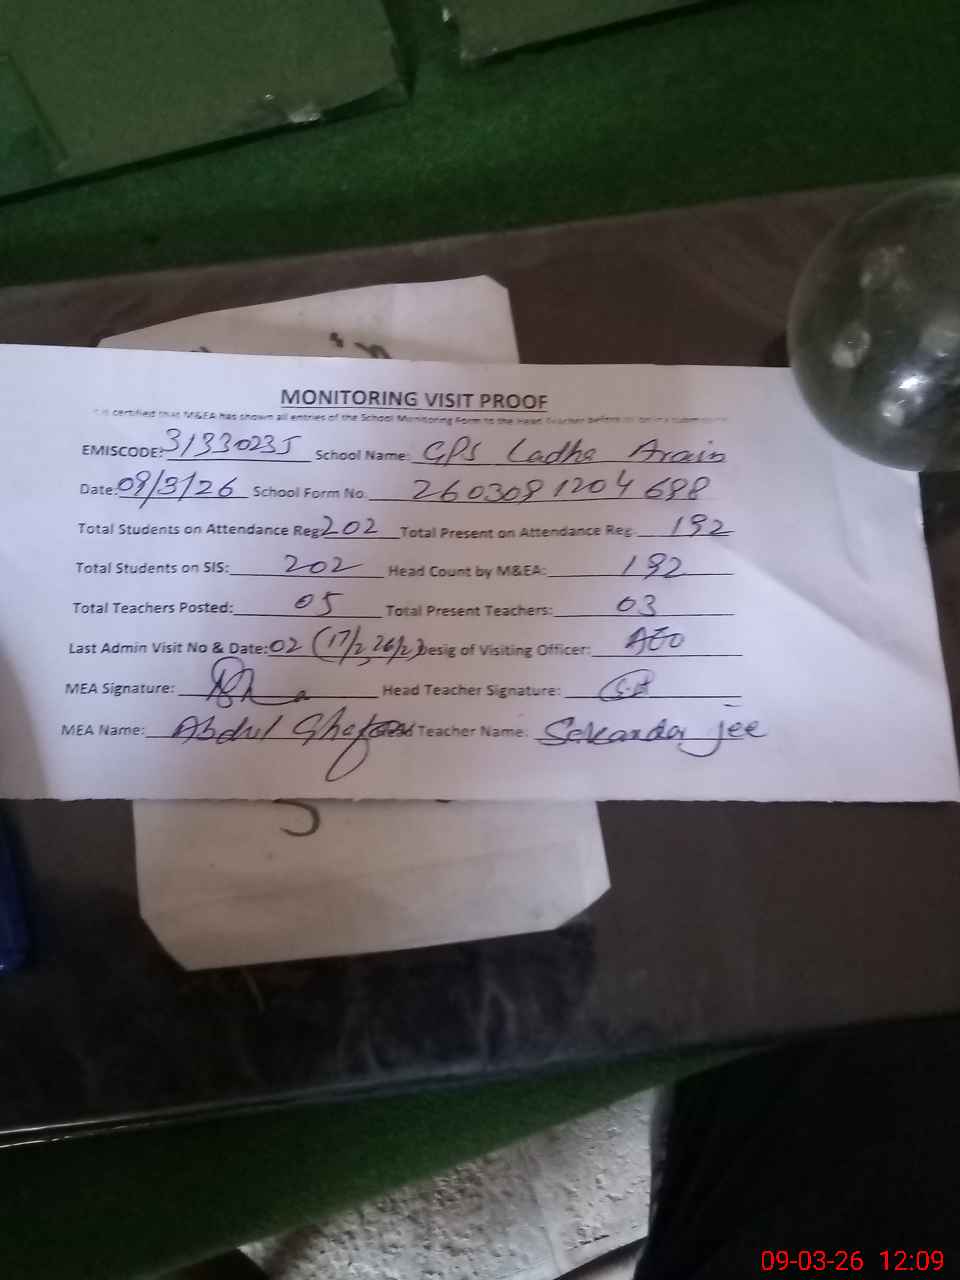 MONITORING VISIT PROOF
It is certified that M&EA has shown all entries of the School Monitoring Form to the Head Teacher before
EMISCODE: 31330235 School Name: GPS Ladha Arain
Date: 09/3/26 School Form No. 2603091204698
Total Students on Attendance Reg 202 Total Present on Attendance Reg: 192
Total Students on SIS: 202 Head Count by M&EA: 192
Total Teachers Posted: 05 Total Present Teachers: 03
Last Admin Visit No & Date: 02 (17/2, 26/2) Desig of Visiting Officer: AEO
MEA Signature: Head Teacher Signature:
MEA Name: Abdul Ghafoor Head Teacher Name: Sekandar jee
09-03-26 12:09